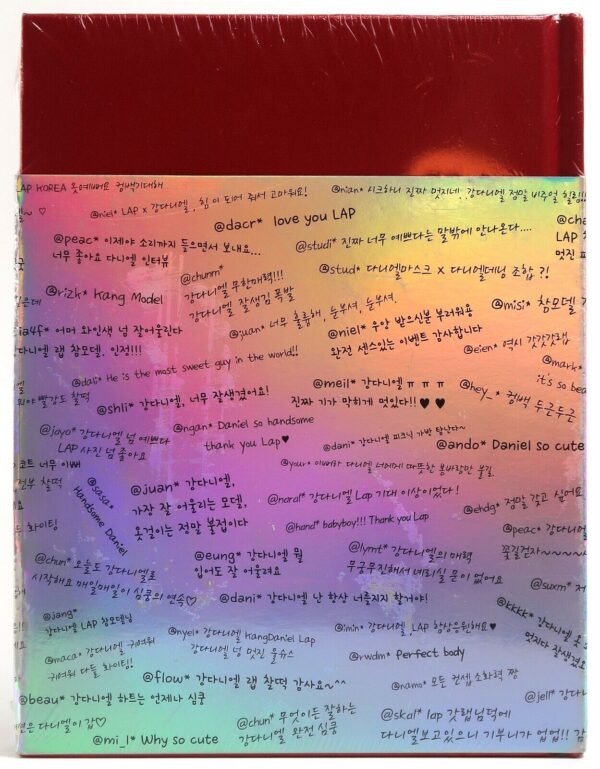 LAP KOREA 옷예뻐요 컴백기대해
@nian* 시크하니 진짜 멋지네..강다니엘 정말 비주얼
@niel* LAP x 강다니엘, 힘이 되어 줘서 고마워요!
@dacr* love you LAP
@peac* 이제야 소리까지 들으면서 보내요...
너무 좋아요 다니엘 인터뷰
@studi* 진짜 너무 예쁘다는 말밖에 안나온다....
LAP
멋진
@chunm*
강다니엘 무한매력!!!
강다니엘 잘생김 폭발
@stud* 다니엘마스크 x 다니엘데님 조합 ?!
@rizk* Kang Model
@misi* 참모델
ia4f* 어머 와인색 넘 잘어울린다
다니엘 랩 참모델, 인정!!!
@juan* 너무 훌륭해, 눈부셔, 눈부셔,
@niel* 우앙 받으신분 부러워용
완전 센스있는 이벤트 감사합니다
@eien* 역시 갓갓갓랩
@mark*
it's so bea
@dali* He is the most sweet guy in the world!!
@shli* 강다니엘, 너무 잘생겼어요!
@meil* 강다니엘 ㅠ ㅠ ㅠ
진짜 기가 막히게 멋있다!! ♥ ♥
@hey_* 컴백 두근두근
@jojo* 강다니엘 넘 예쁘다
LAP 사진 넘 좋아요
@ngan* Daniel so handsome
thank you Lap♥
@dani* 강다니엘 피크닉 가방 탐난다~
@ando* Daniel so cute
코트 너무 이뻐
@sasa*
Handsome Daniel
@juan* 강다니엘,
가장 잘 어울리는 모델,
옷걸이는 정말 불접이다
@your* 이쁘다 다니엘 너에게 따뜻한 봄바람만 불길
@naral* 강다니엘 Lap 기대 이상이었다!
@ehdg* 정말 갖고 싶어요
@hand* babyboy!!! Thank you Lap
@peac* 강다니엘
꽃길걷자~~~~
다 화이팅!
@chun* 오늘도 강다니엘로
시작해요 매일매일이 심쿵의 연속♡
@eung* 강다니엘 뭘
입어도 잘 어울려요
@lymt* 강다니엘의 매력
무궁무진해서 헤리실 문이 없어요
@suxm*
@dani* 강다니엘 난 항상 너를지지 할거야!
@jang*
강다니엘 LAP 참모델님
@nyel* 강다니엘 KangDaniel Lap
강다니엘 넝 멋진 울슈스
@imin* 강다니엘, LAP 항상응원해요♥
@kkkk* 강다니엘
멋지다 잘생겼
@maca* 강다니엘 귀여워
귀여워 다들 화이팅!
@rwdm* perfect body
@flow* 강다니엘 랩 찰떡 감사요~^^
@namo* 모든 컨셉 소화력 짱
@jell* 강다니
@beau* 강다니엘 하트는 언제나 심쿵
@chun* 무엇이든 잘하는
강다니엘 완전 심쿵
@skal* lap 갓랩님덕에
다니엘보고있으니 기부니가 업업!! 감
다니엘이 갑♡
@mi_l* Why so cute